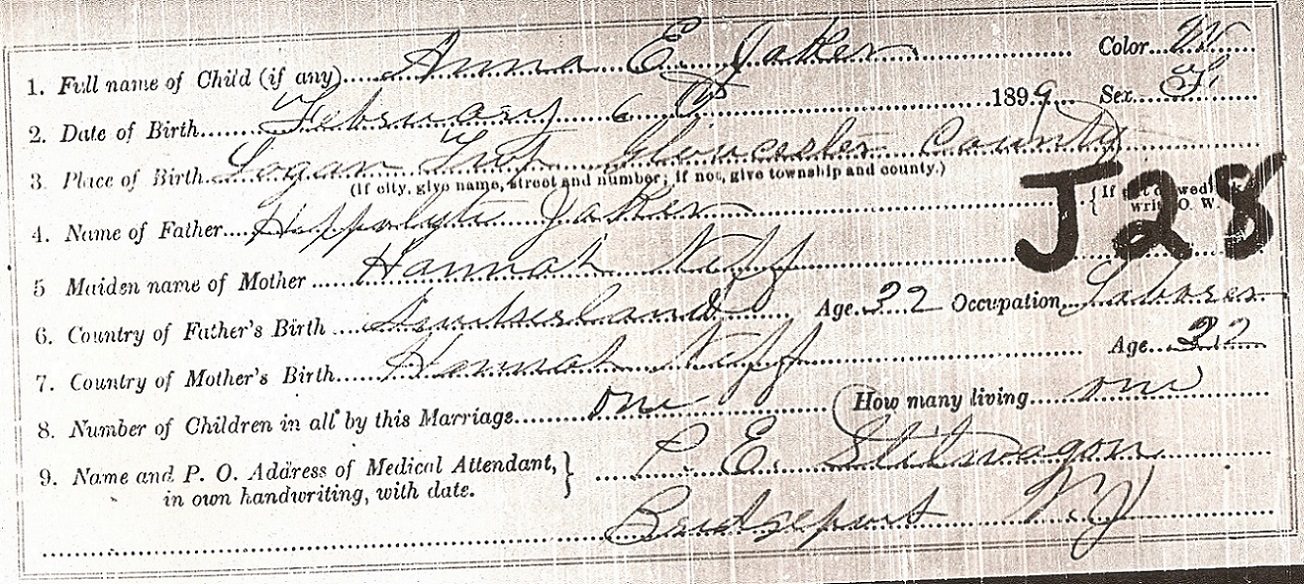 1. Full name of Child (if any) Anna E. Jaker Color W
2. Date of Birth February 6th 1899 Sex F.
3. Place of Birth Logan Twp Gloucester County
(If city, give name, street and number; if not, give township and county.)
4. Name of Father Hippolyte Jaker {If not
writ O. W.
J28
5 Maiden name of Mother Hannah Neff
6. Country of Father's Birth Switserland Age 32 Occupation Laborer
7. Country of Mother's Birth Hannah Neff Age 22
8. Number of Children in all by this Marriage one (How many living one
9. Name and P. O. Address of Medical Attendant, } P. E. Stilwagon
in own handwriting, with date.
Bridgeport NJ